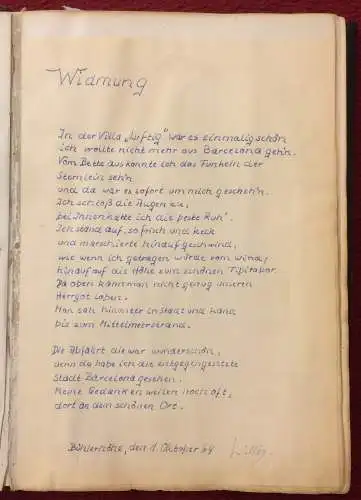 Widmung
In der Villa „luftig" war es einmalig schön
ich wollte nicht mehr aus Barcelona geh'n.
Vom Bette aus konnte ich das Funkeln der
Sternlein seh'n
und da war es sofort um mich gescheh'n.
Ich schloß die Augen zu,
bei Ihnen hatte ich die beste Ruh'.
Ich stand auf, so frisch und keck
und marschierte hinauf geschwind,
wie wenn ich getragen würde vom Wind,
hinauf auf die Höhe zum schönen Tipitapor.
Da oben kann man nicht genug unseren
Herrgot loben.
Man sah hinunter in Stadt und Land,
bis zum Mittelmeerstrand.
Die Abfahrt die war wunderschön,
denn da habe ich die entgegengesetzte
Stadt Barcelona gesehen.
Meine Gedanken weilen noch oft,
dort an dem schönen Ort.
Bühlerhöhe, den 1. Oktober 64